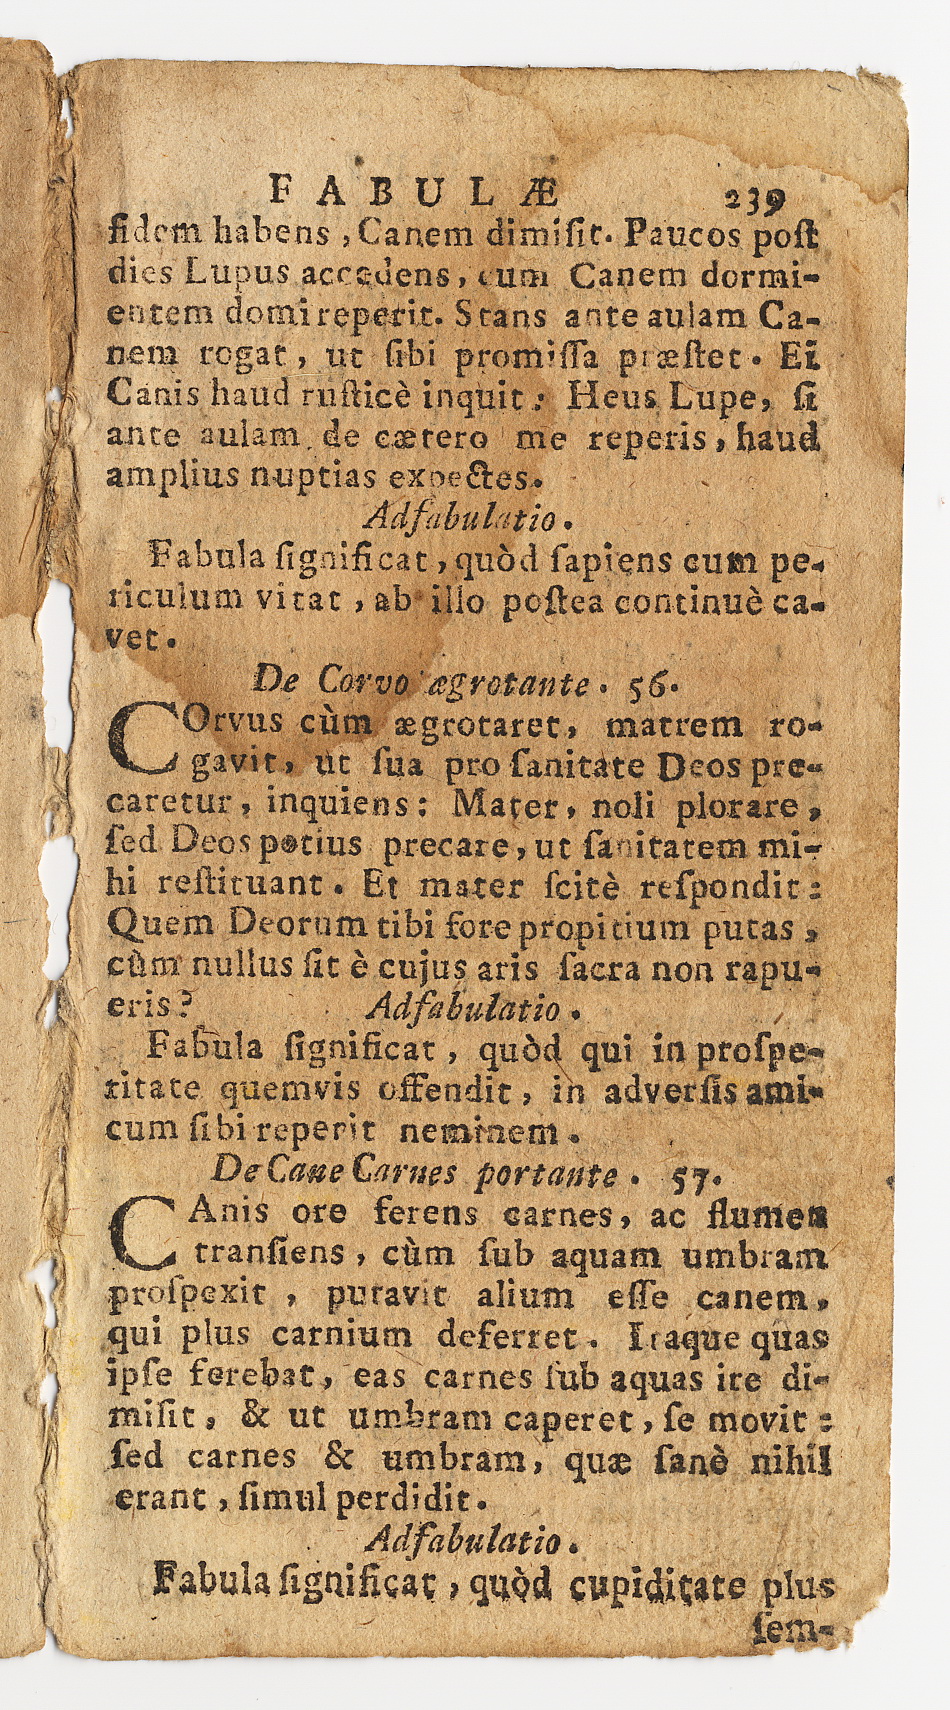 FABULÆ 239
fidem habens, Canem dimiſit. Paucos poſt
dies Lupus accedens, cum Canem dormi-
entem domi reperit. Stans ante aulam Ca-
nem rogat, ut ſibi promiſſa præſtet. Ei
Canis haud ruſticè inquit: Heus Lupe, ſi
ante aulam de cætero me reperis, haud
amplius nuptias expectes.
Adfabulatio.
Fabula ſignificat, quòd ſapiens cum pe-
riculum vitat, ab illo poſtea continuè ca-
vet.
De Corvo ægrotante. 56.
COrvus cùm ægrotaret, matrem ro-
gavit, ut ſua pro ſanitate Deos pre-
caretur, inquiens: Mater, noli plorare,
ſed Deos potius precare, ut ſanitatem mi-
hi reſtituant. Et mater ſcitè reſpondit:
Quem Deorum tibi fore propitium putas,
cùm nullus ſit è cujus aris ſacra non rapu-
eris? Adfabulatio.
Fabula ſignificat, quòd qui in proſpe-
ritate quemvis offendit, in adverſis ami-
cum ſibi reperit neminem.
De Cane Carnes portante. 57.
CAnis ore ferens carnes, ac flumen
tranſiens, cùm ſub aquam umbram
proſpexit, putavit alium eſſe canem,
qui plus carnium deferret. Itaque quas
ipſe ferebat, eas carnes ſub aquas ire di-
miſit, & ut umbram caperet, ſe movit:
ſed carnes & umbram, quæ ſanè nihil
erant, ſimul perdidit.
Adfabulatio.
Fabula ſignificat, quòd cupiditate plus
ſem-